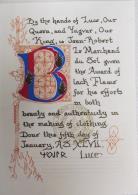 By the hands of Luce, Our
Queen, and Yngvar, Our
King, is Jean-Robert
Le Marchand
du Sel given
the Award of
lack Fleur
for his efforts
in both
B
beauty and authenticity in
the making of clothing
Done this fifth day of
January, AS XLVII
Luce